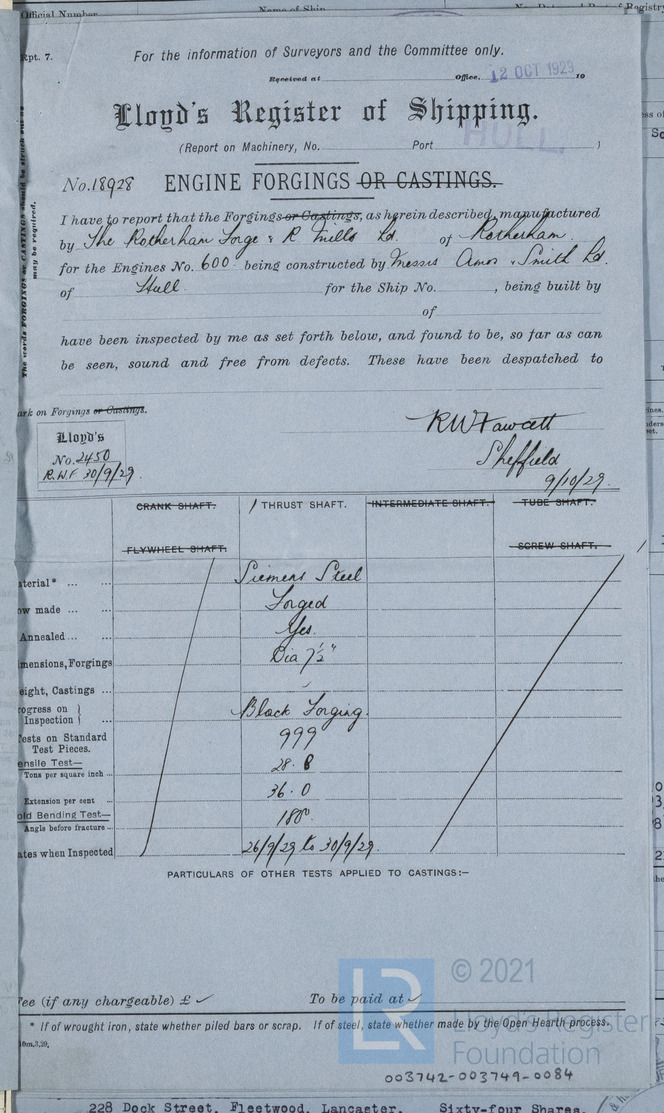 Official Number
Name of Ship
Rpt. 7.
For the information of Surveyors and the Committee only.
Received at Office, 12 OCT 1929 19
Lloyd's Register of Shipping.
HULL.
(Report on Machinery, No. Port )
No. 18928 ENGINE FORGINGS OR CASTINGS.
I have to report that the Forgings or Castings, as herein described, manufactured
by The Rotherham Forge & R Mills Ld. of Rotherham.
for the Engines No. 600 being constructed by Messrs Amos & Smith Ld.
of Hull for the Ship No. , being built by
of
have been inspected by me as set forth below, and found to be, so far as can
be seen, sound and free from defects. These have been despatched to
The words FORGINGS or CASTINGS should be struck out as
may be required.
ark on Forgings or Castings.
RW Fawcett
Sheffield
9/10/29.
Lloyd's
No. 2450
R.W.F. 30/9/29.
CRANK SHAFT. / THRUST SHAFT. INTERMEDIATE SHAFT. TUBE SHAFT.
FLYWHEEL SHAFT. SCREW SHAFT.
aterial* ... ... Siemens Steel
ow made ... ... Forged
Annealed ... ... Yes.
mensions, Forgings Dia 7½"
eight, Castings ...
ogress on } Inspection } ... Black Forging.
ests on Standard Test Pieces. 999
ensile Test—
Tons per square inch ... 28.8
Extension per cent ... 36.0
old Bending Test—
Angle before fracture ... 180°
ates when Inspected 26/9/29 to 30/9/29.
PARTICULARS OF OTHER TESTS APPLIED TO CASTINGS:—
Fee (if any chargeable) £ ✓ To be paid at ✓
* If of wrought iron, state whether piled bars or scrap. If of steel, state whether made by the Open Hearth process.
0m.3,29.
LR
© 2021
Lloyd's Register
Foundation
003742-003749-0084
228 Dock Street, Fleetwood, Lancaster. Sixty-four Shares.